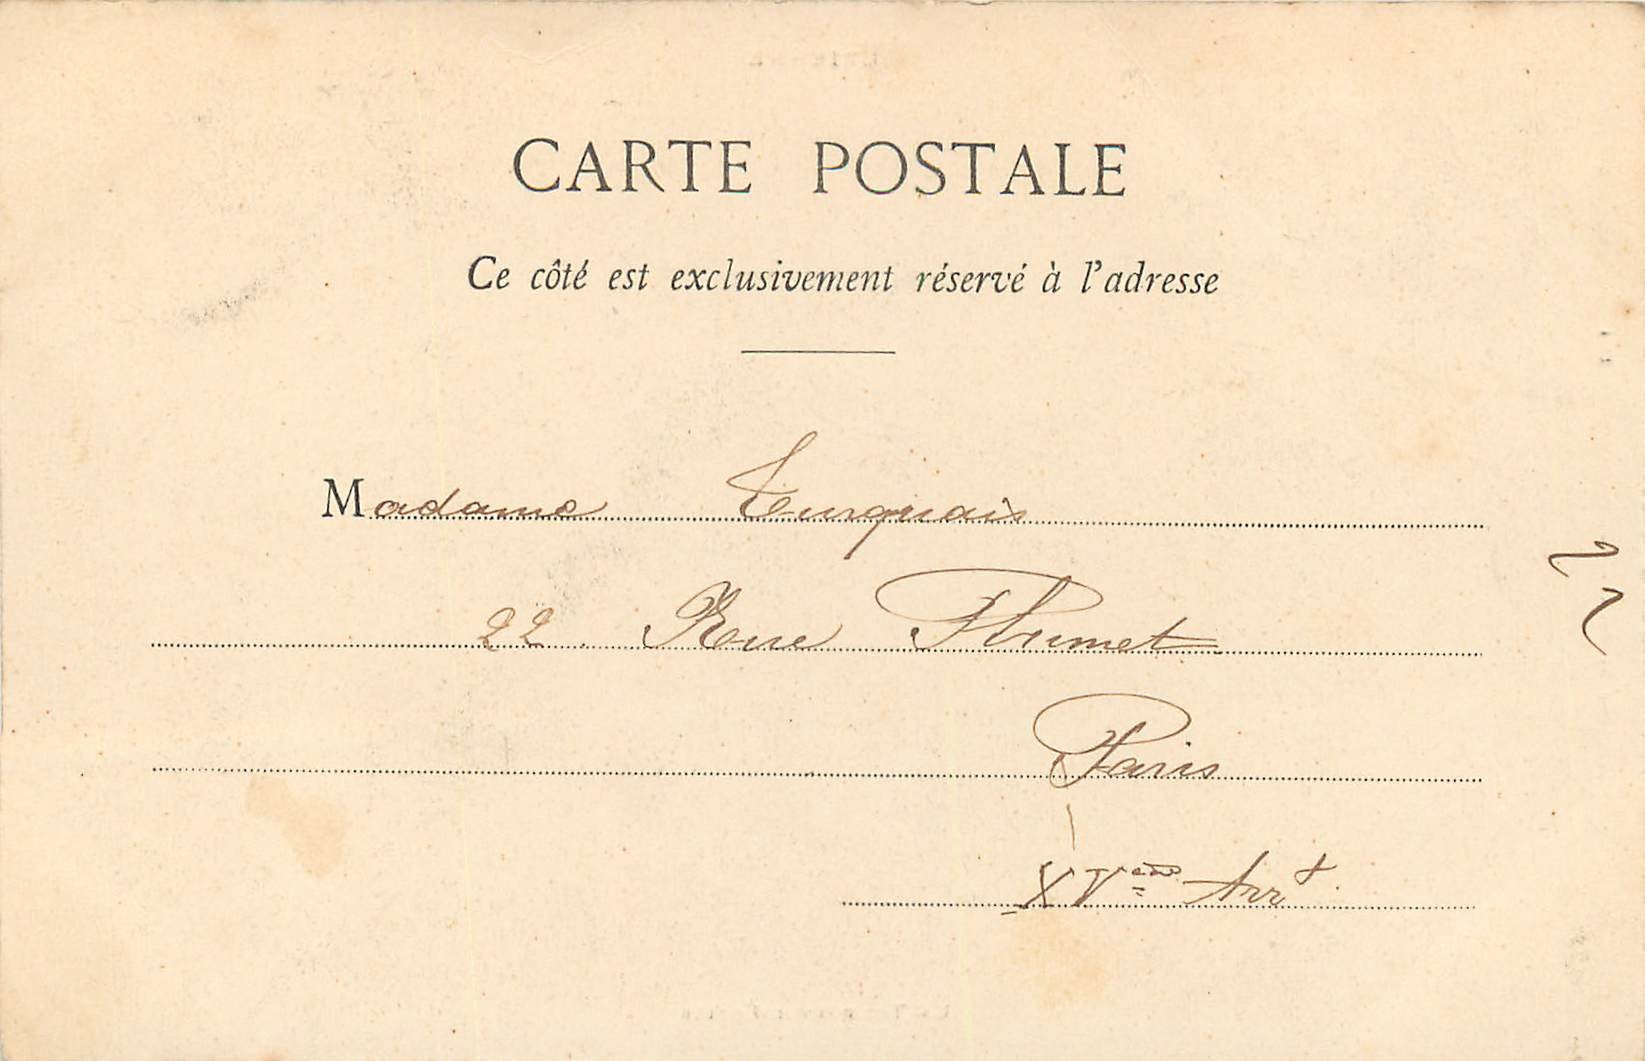 CARTE POSTALE
Ce côté est exclusivement réservé à l'adresse
Madame Turquais
22 Rue Plumet
Paris
XVème Arrt